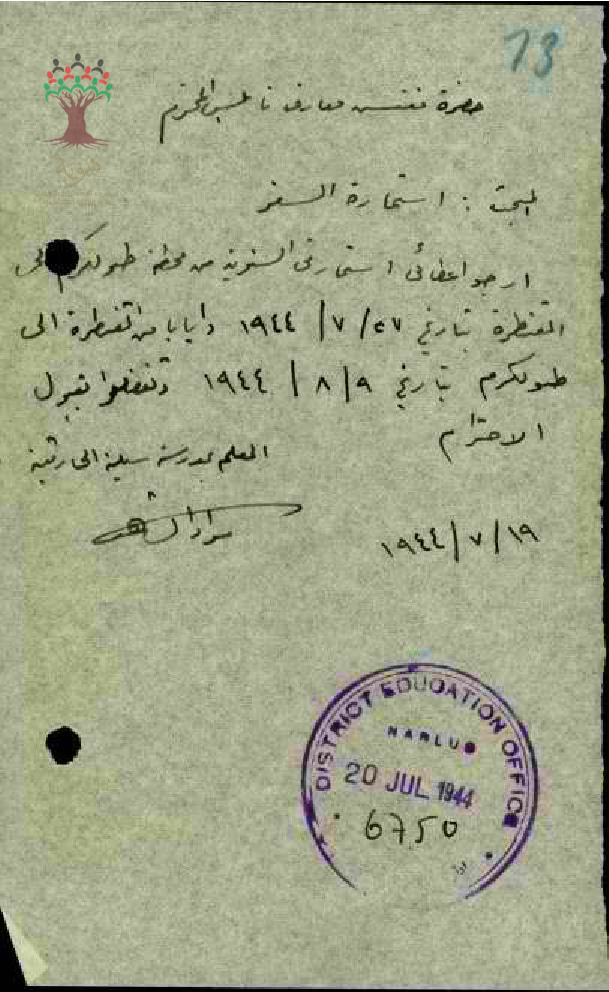 13
حضرة مفتش معارف نابلس المحترم
المبحث : استمارة السفر
ارجو اعطائي استمارتي السنوية من محطة طولكرم الى
القنطرة بتاريخ ٢٧/٧/١٩٤٤ وايابا من القنطرة الى
طولكرم بتاريخ ٩/٨/١٩٤٤ وتفضلوا بقبول
الاحترام
المعلم بمدرسة سيلة الحارثية
١٩/٧/١٩٤٤
DISTRICT EDUCATION OFFICE
NABLUS
20 JUL 1944
6750